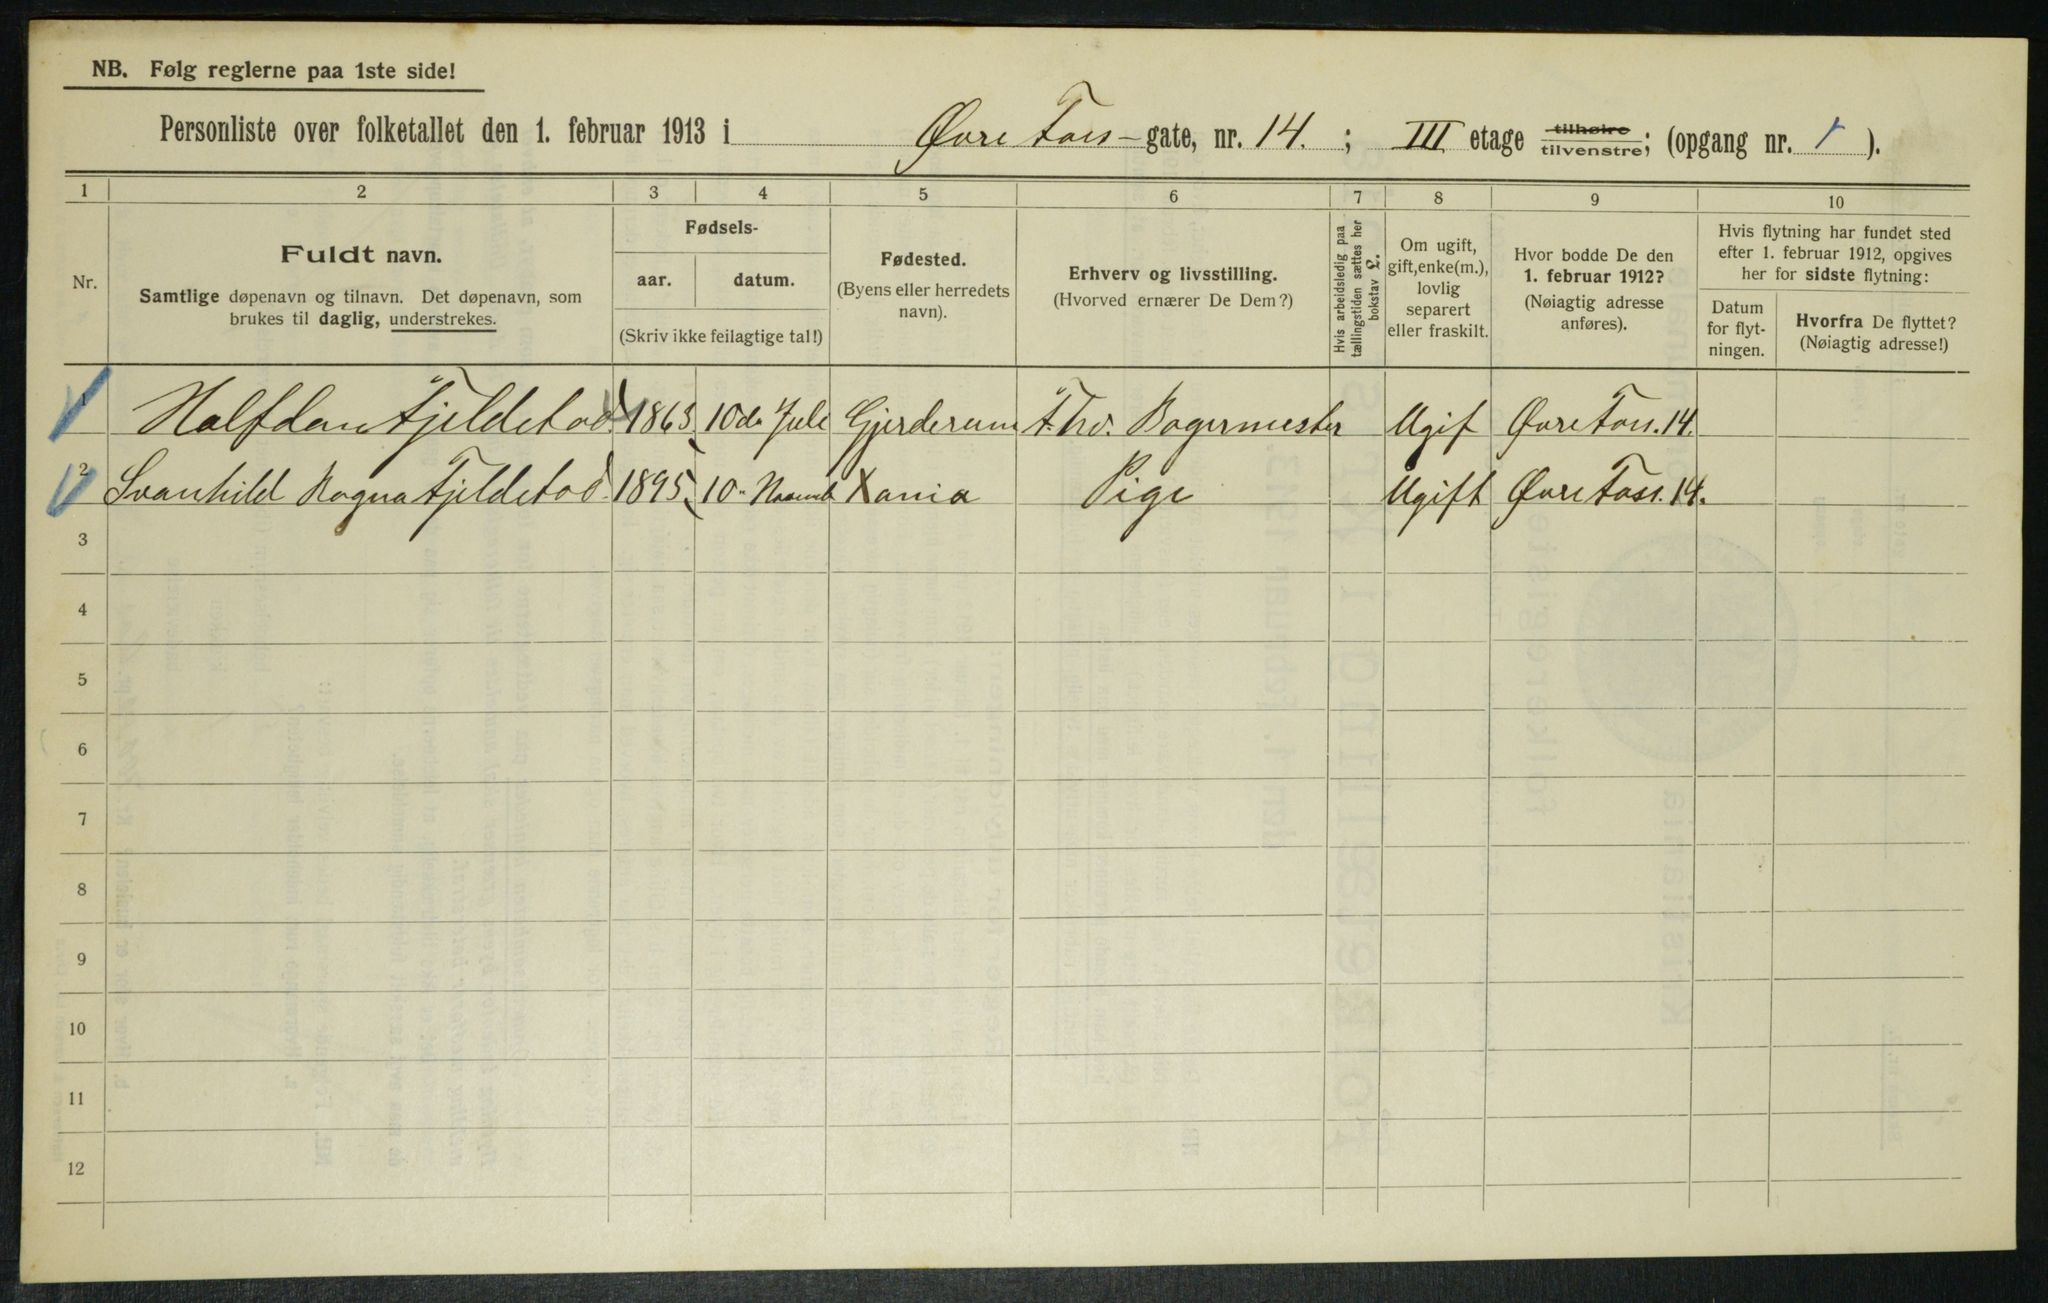 NB. Følg reglerne paa 1ste side!
Personliste over folketallet den 1. februar 1913 i Øvre Foss-gate, nr. 14. ; III etage tilhøire tilvenstre; (opgang nr. 1 ).
1 2 3 4 5 6 7 8 9 10
Nr.
Fuldt navn.
Samtlige døpenavn og tilnavn. Det døpenavn, som
brukes til daglig, understrekes.
Fødsels-
aar. datum.
(Skriv ikke feilagtige tal!)
Fødested.
(Byens eller herredets
navn).
Erhverv og livsstilling.
(Hvorved ernærer De Dem?)
Hvis arbeidsledig paa
tællingstiden sættes her
bokstav L.
Om ugift,
gift, enke(m.),
lovlig
separert
eller fraskilt.
Hvor bodde De den
1. februar 1912?
(Nøiagtig adresse
anføres).
Hvis flytning har fundet sted
efter 1. februar 1912, opgives
her for sidste flytning:
Datum
for flyt-
ningen.
Hvorfra De flyttet?
(Nøiagtig adresse!)
1 Halfdan Fjeldstad 1863 10de Juli Gjerderum Ugif Øvre Foss. 14.
2 Svanhild Ragna Fjeldstad. 1895 10" Novemb Xania Pige Ugift Øvre Foss. 14.
3
4
5
6
7
8
9
10
11
12